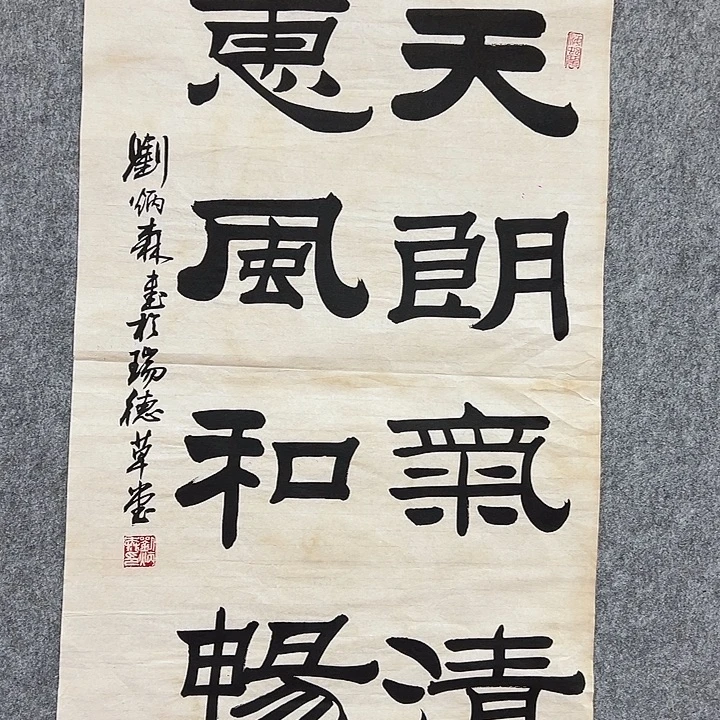 天朗氣清
惠風和暢
劉炳森書於瑞德草堂